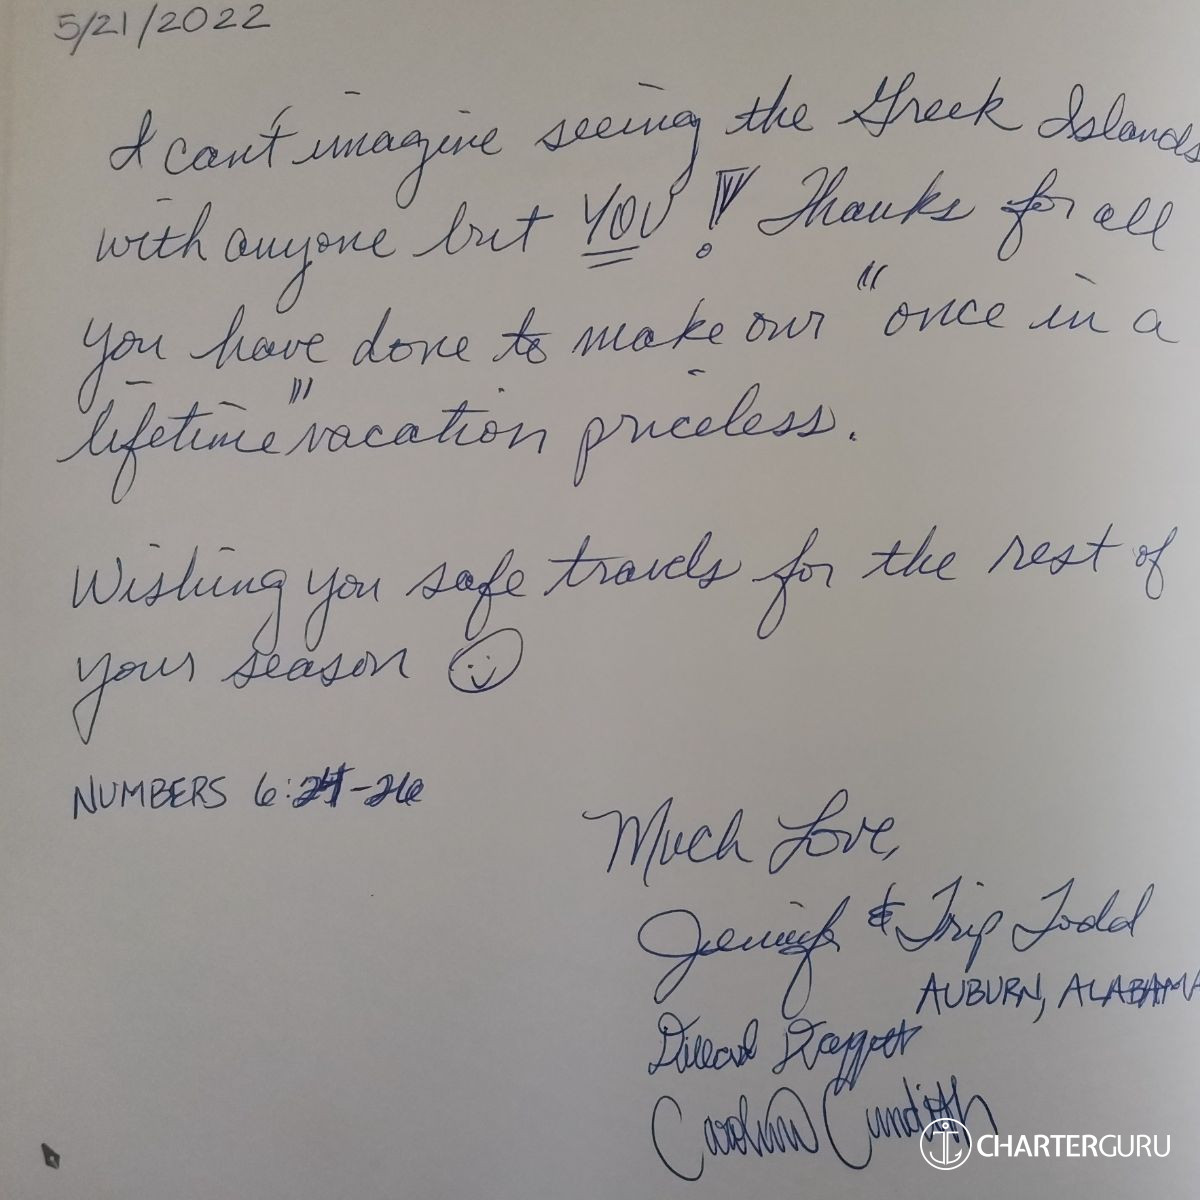 5/21/2022
I can't imagine seeing the Greek Islands
with anyone but YOU! Thanks for all
you have done to make our "once in a
lifetime" vacation priceless.
Wishing you safe travels for the rest of
your season
NUMBERS 6:24-26
Much Love,
Jennifer & Trip Todd
AUBURN, ALABAMA
Dillard
CHARTERGURU